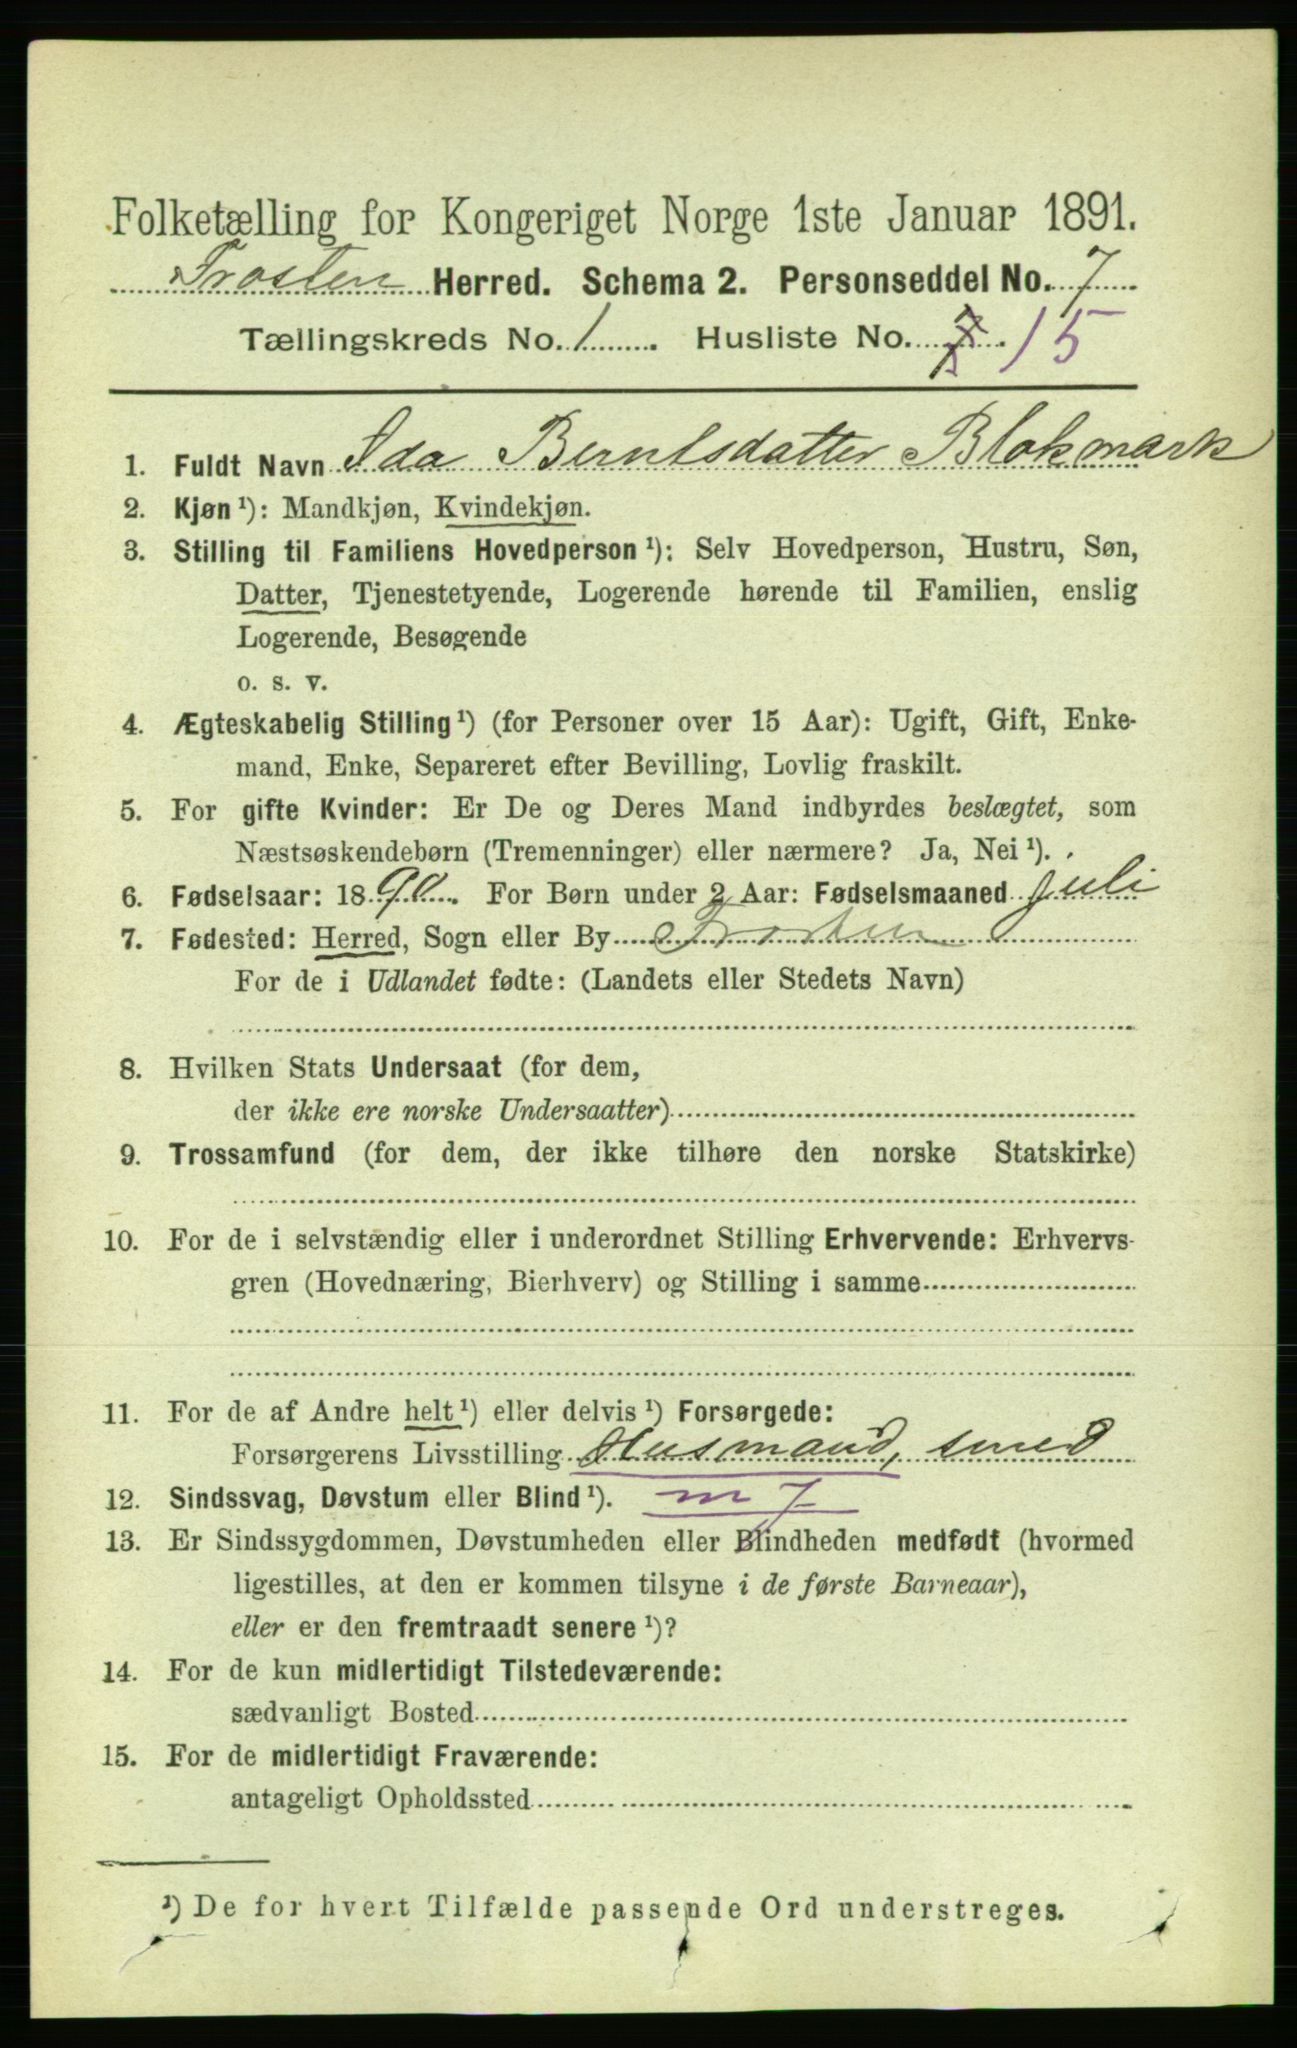 Folketælling for Kongeriget Norge 1ste Januar 1891.
Frosten Herred. Schema 2. Personseddel No. 7
Tællingskreds No. 1. Husliste No. 15
1. Fuldt Navn Ida Berntsdatter Blokmark
2. Kjøn ¹): Mandkjøn, Kvindekjøn.
3. Stilling til Familiens Hovedperson ¹): Selv Hovedperson, Hustru, Søn,
Datter, Tjenestetyende, Logerende hørende til Familien, enslig
Logerende, Besøgende
o. s. v.
4. Ægteskabelig Stilling ¹) (for Personer over 15 Aar): Ugift, Gift, Enke-
mand, Enke, Separeret efter Bevilling, Lovlig fraskilt.
5. For gifte Kvinder: Er De og Deres Mand indbyrdes beslægtet, som
Næstsøskendebørn (Tremenninger) eller nærmere? Ja, Nei ¹).
6. Fødselsaar: 1890. For Børn under 2 Aar: Fødselsmaaned Juli
7. Fødested: Herred, Sogn eller By Frosten
For de i Udlandet fødte: (Landets eller Stedets Navn)
8. Hvilken Stats Undersaat (for dem,
der ikke ere norske Undersaatter)
9. Trossamfund (for dem, der ikke tilhøre den norske Statskirke)
10. For de i selvstændig eller i underordnet Stilling Erhvervende: Erhvervs-
gren (Hovednæring, Bierhverv) og Stilling i samme
11. For de af Andre helt ¹) eller delvis ¹) Forsørgede:
Forsørgerens Livsstilling Husmand, smed
12. Sindssvag, Døvstum eller Blind ¹). m J
13. Er Sindssygdommen, Døvstumheden eller Blindheden medfødt (hvormed
ligestilles, at den er kommen tilsyne i de første Barneaar),
eller er den fremtraadt senere ¹)?
14. For de kun midlertidigt Tilstedeværende:
sædvanligt Bosted
15. For de midlertidigt Fraværende:
antageligt Opholdssted
¹) De for hvert Tilfælde passende Ord understreges.